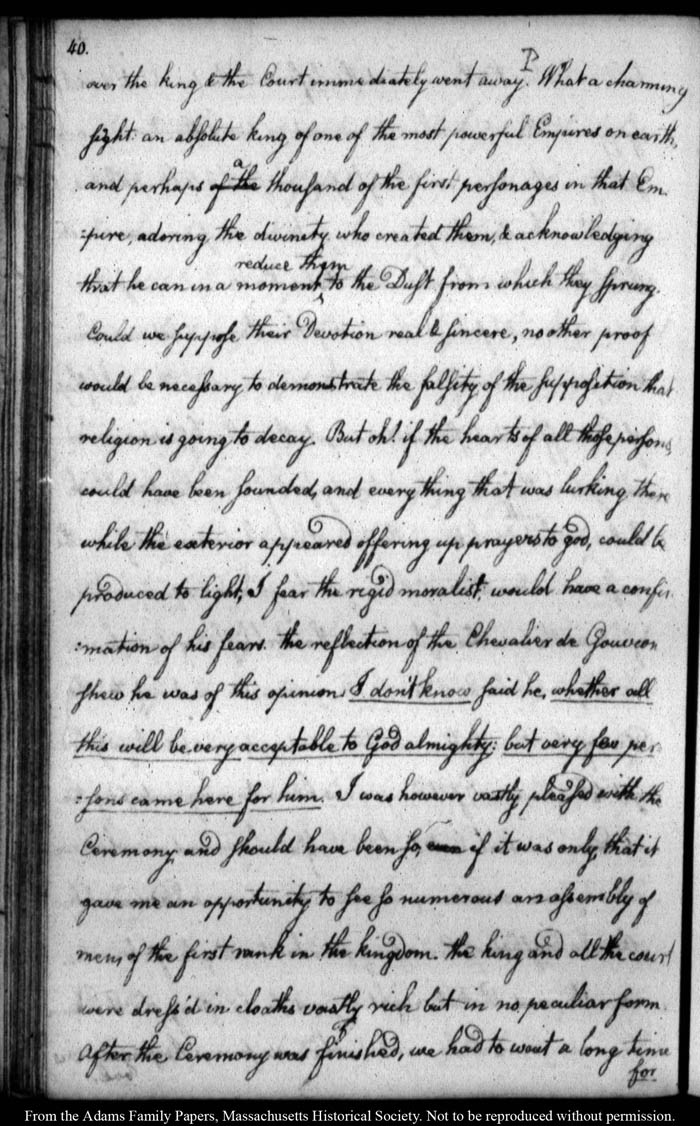 40.
P
over the king & the Court immediately went away. What a charming
sight: an absolute king of one of the most powerful Empires on earth,
and perhaps of the a thousand of the first personages in that Em
:pire, adoring the divinity who created them, & acknowledging
reduce them
that he can in a moment ‸ to the Dust from which they sprung.
Could we suppose their Devotion real & sincere, no other proof
would be necessary to demonstrate the falsity of the supposition that
religion is going to decay. But oh! if the hearts of all those persons,
could have been sounded, and every thing that was lurking there
while the exterior appeared offering up prayers to god, could be
produced to light, I fear the rigid moralist, would have a confir
:mation of his fears. the reflection of the Chevalier de Gouvion
shew he was of this opinion. I don't know said he, whether all
this will be very acceptable to God almighty: but very few per
:sons came here for him. I was however vastly pleased with the
Ceremony, and should have been so, even if it was only, that it
gave me an opportunity to see so numerous an assembly of
men, of the first rank in the kingdom. the king and all the court
were dress'd in cloaths vastly rich but in no peculiar form.
P
After the Ceremony was finished, we had to wait a long time
for
From the Adams Family Papers, Massachusetts Historical Society. Not to be reproduced without permission.